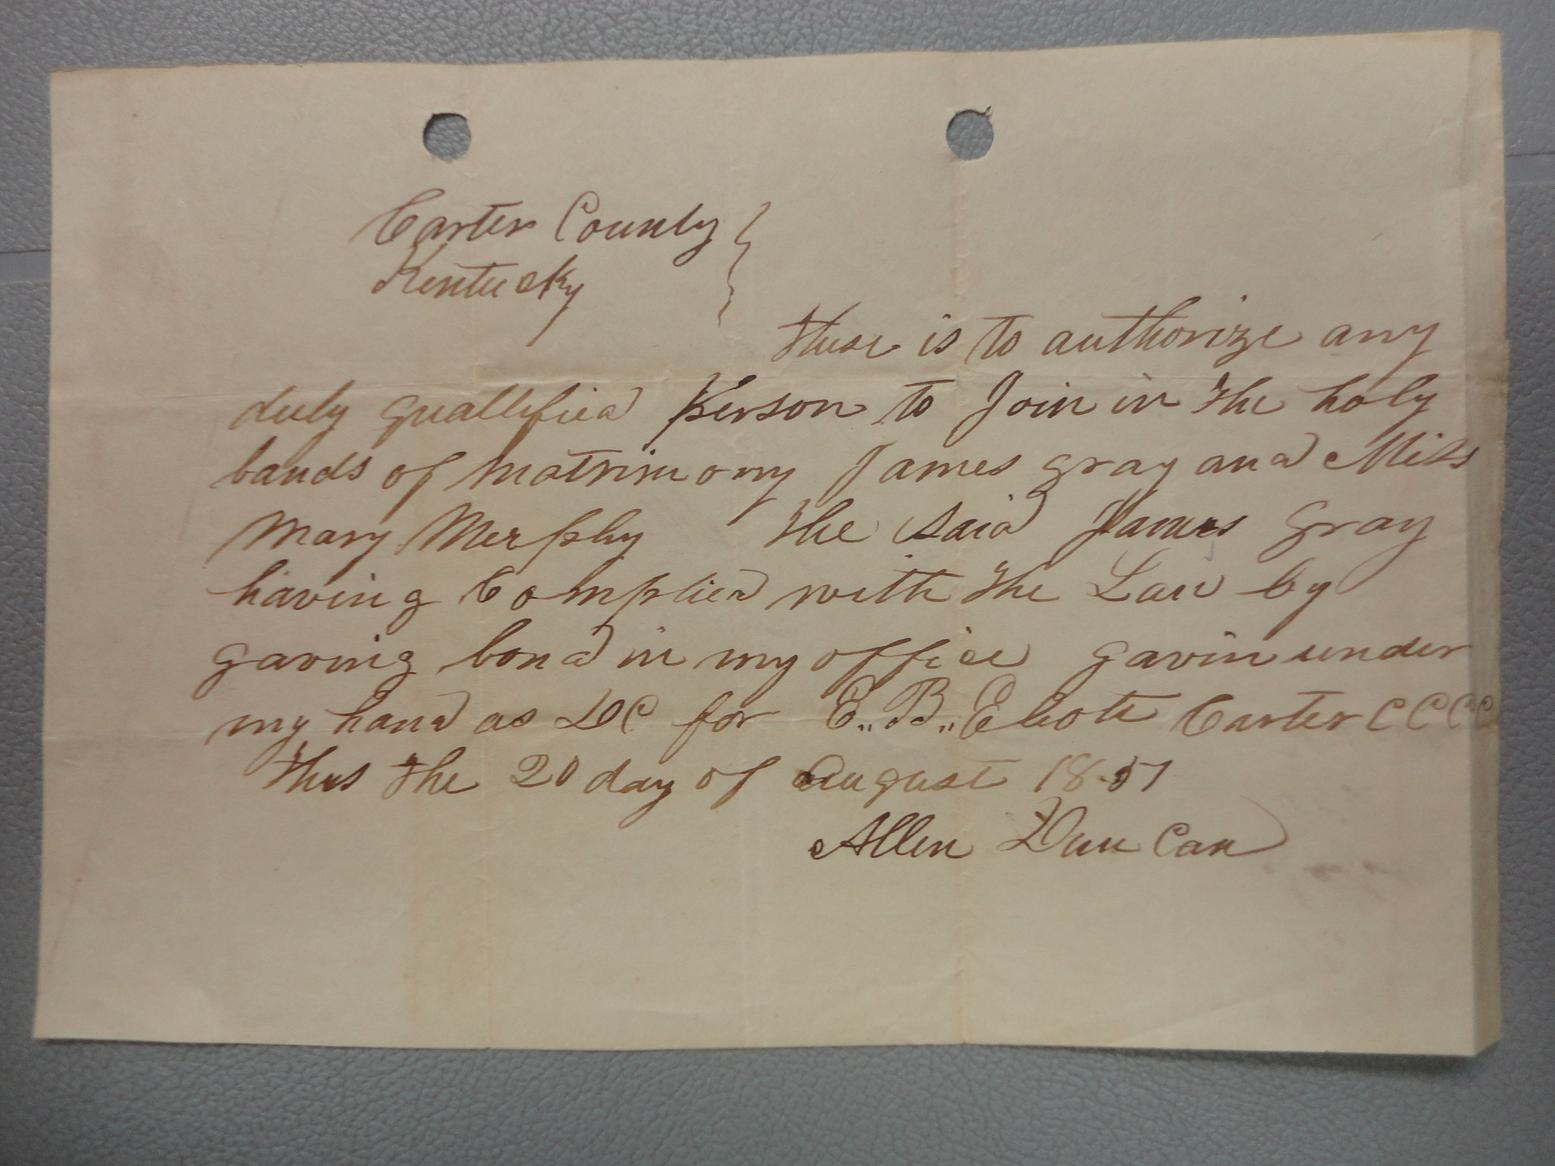 Carter County }
Kentucky }
these is to authorize any
duly quallified Person to Join in the holy
bands of Matrimony James gray and Miss
Mary Merphy the said James gray
having Complied with the Law by
gaving bond in my office gavin under
my hand as DC for E. B. Eliott Carter CCCC
this the 20 day of August 1857
Allen Duncan